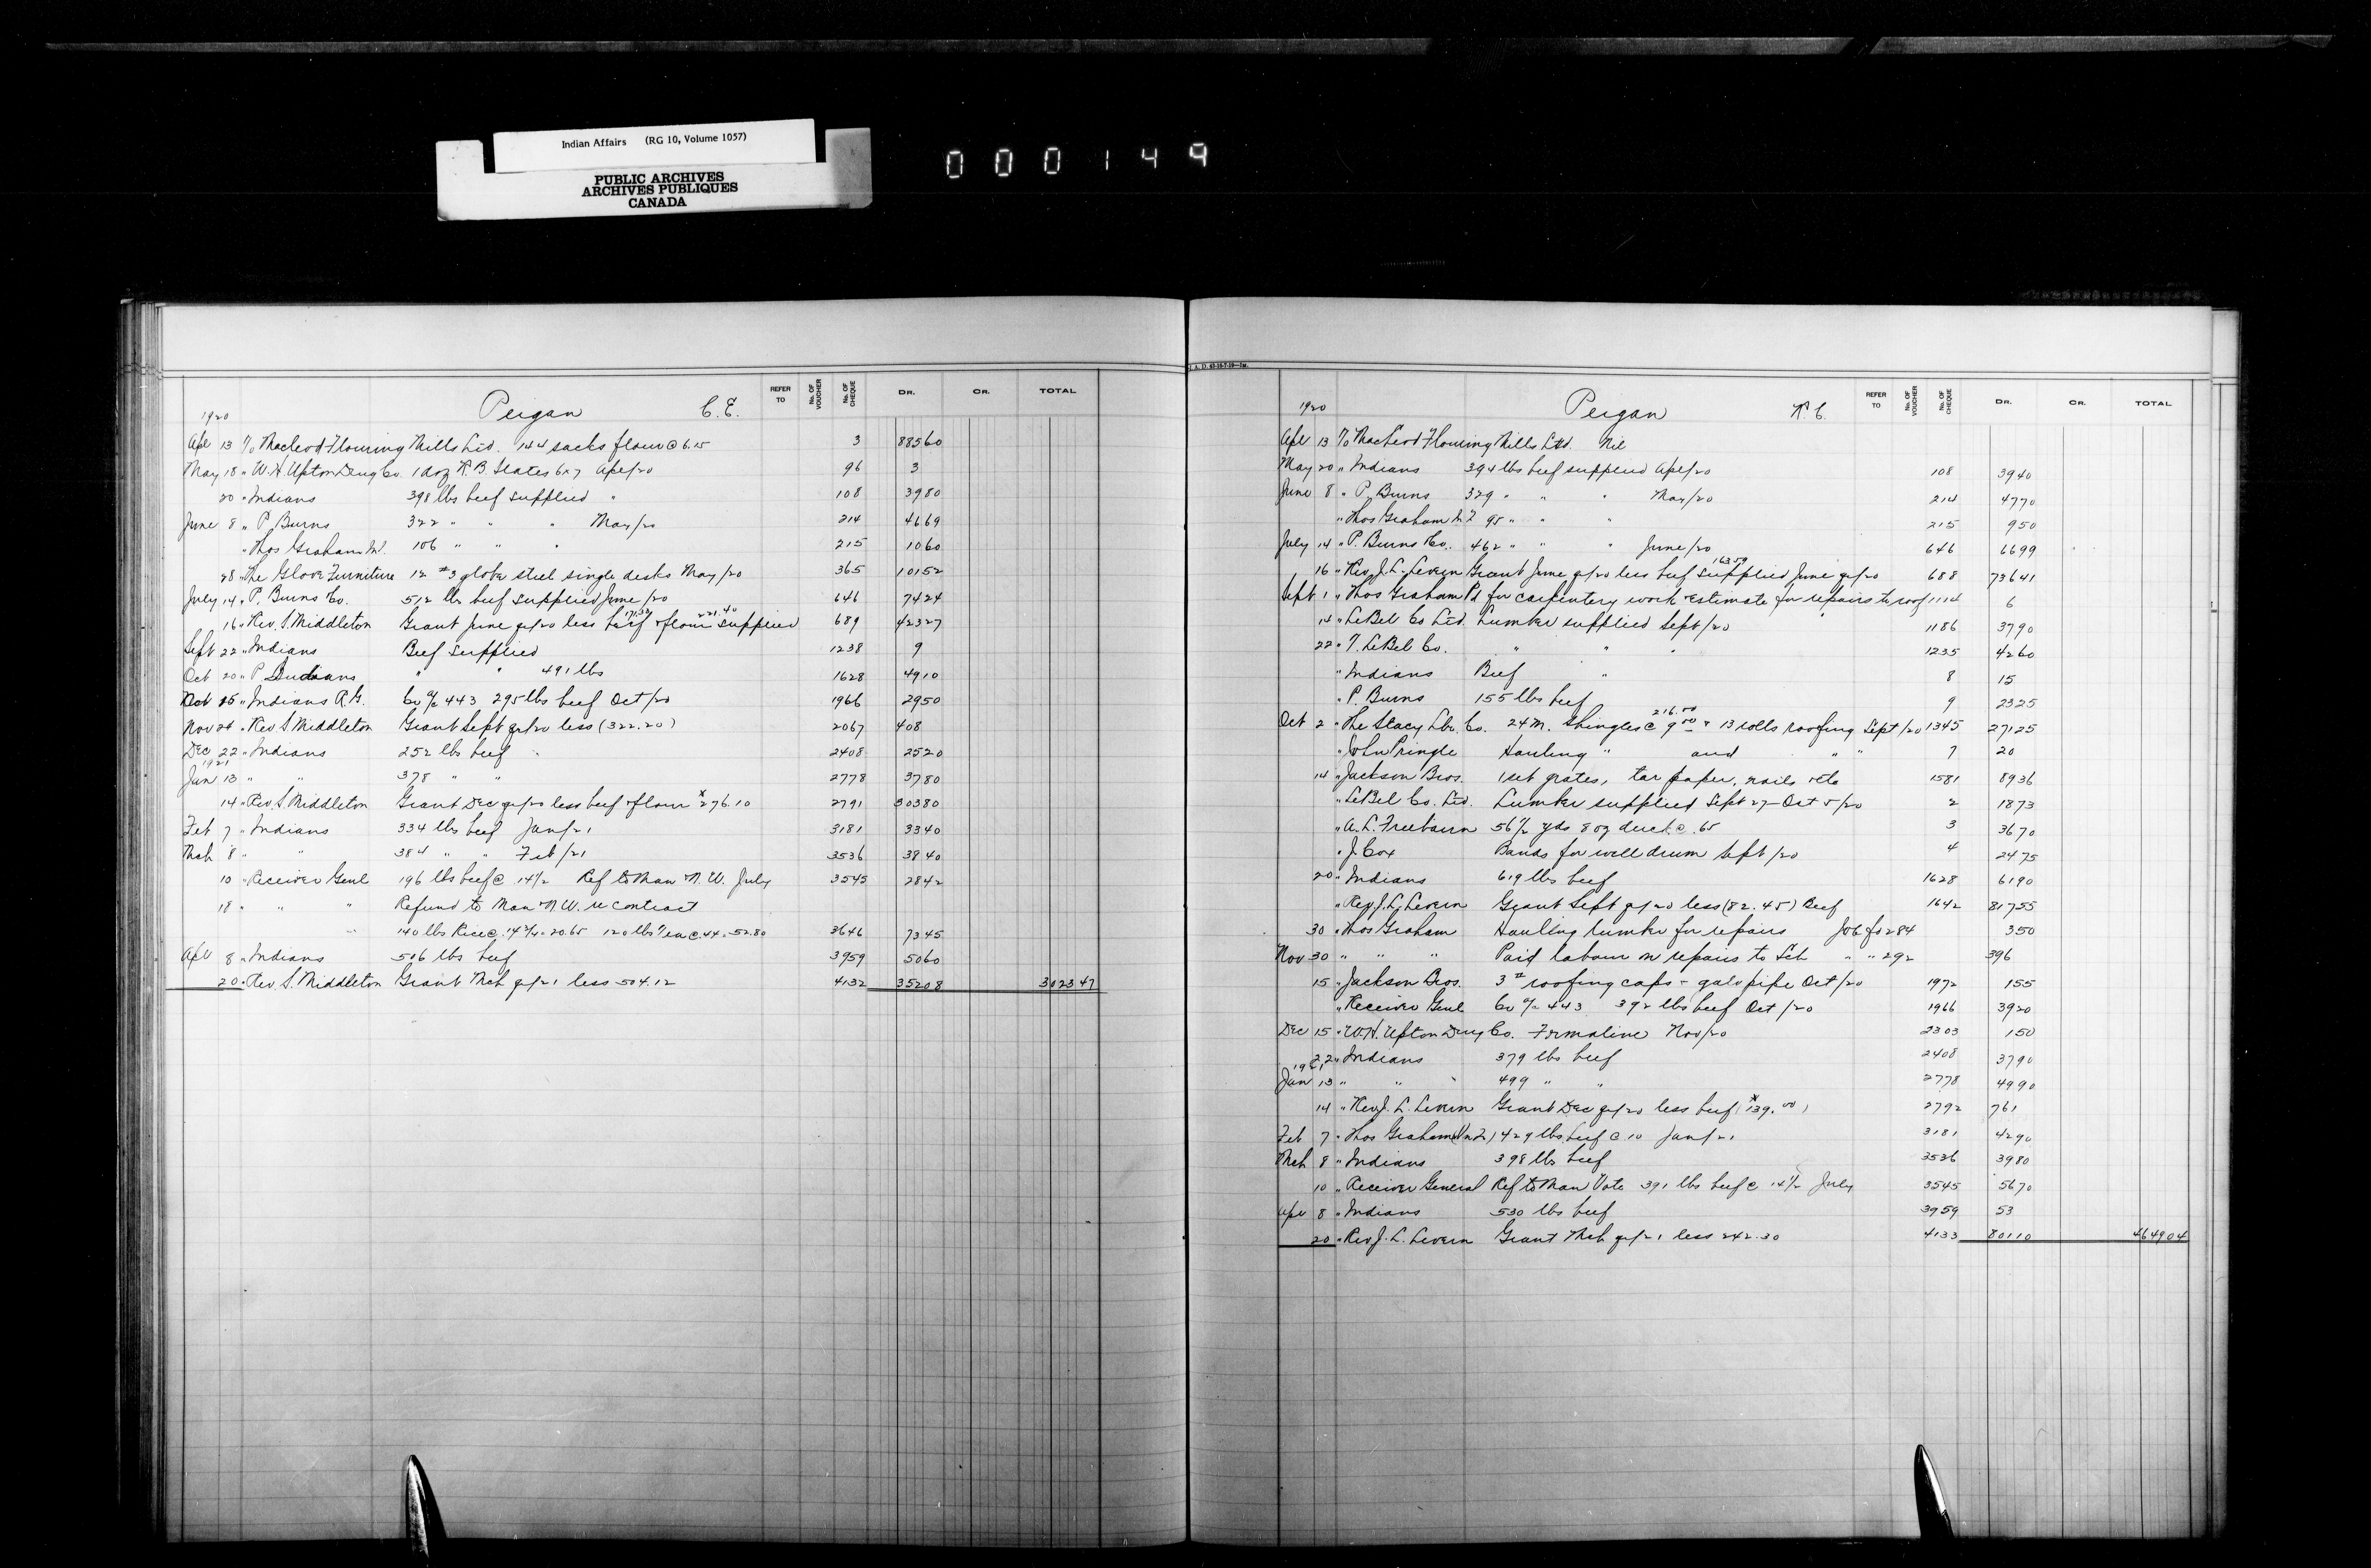 Indian Affairs (RG 10, Volume 1057)
PUBLIC ARCHIVES
ARCHIVES PUBLIQUES
CANADA
000149
Peigan C.E.
REFER TO No. OF VOUCHER No. OF CHEQUE DR. CR. TOTAL
1920
Apl 13 To Macleod Flouring Mills Ltd. 144 sacks flour @ 6.15 3 88560
May 18 " W.H. Upton Drug Co. 1 doz R.B. Slates 6x7 Apl/20 96 3
20 " Indians 398 lbs beef supplied " 108 3980
June 8 " P. Burns 322 " " " May/20 214 4669
" Thos Graham 106 " " " 215 1060
28 " The Globe Furniture 12 #3 globe steel single desks May/20 365 10152
July 14 " P. Burns Co. 512 lbs beef supplied June/20 646 7424
16 " Rev. S. Middleton Grant June qr/20 less beef 171.32 + flour 221.40 supplied 689 42327
Sept 22 " Indians Beef supplied 1238 9
Oct 20 " Indians " " 491 lbs 1628 4910
Oct 15 " Indians R.G. Co a/c 443 295 lbs beef Oct/20 1966 2950
Nov 24 " Rev S Middleton Grant Sept qr/20 less (322.20) 2067 408
Dec 22 " Indians 252 lbs beef " 2408 2520
1921
Jan 13 " " 378 " " 2778 3780
14 " Rev. S. Middleton Grant Dec qr/20 less beef + flour 276.10 2791 30380
Feb 7 " Indians 334 lbs beef Jan/21 3181 3340
Mch 8 " " 384 " " Feb/21 3536 3840
10 " Receiver Genl 196 lbs beef @ 14½ Ref to Man N.W. July 3545 2842
18 " " " Refund to Man N.W. re contract
" 140 lbs Rice @ 14¾ = 20.65 120 lbs Tea @ 44 = 52.80 3646 7345
Apl 8 " Indians 506 lbs beef 3959 5060
20 " Rev. S. Middleton Grant Mch qr/21 less 504.12 4132 35208 302347
I.A.D. 43-10-7-19—1M.
Peigan R.C.
REFER TO No. OF VOUCHER No. OF CHEQUE DR. CR. TOTAL
1920
Apl 13 To MacLeod Flouring Mills Ltd. Nil
May 20 " Indians 394 lbs beef supplied Apl/20 108 3940
June 8 " P. Burns 329 " " " May/20 214 4770
" Thos Graham 95 " " " 215 950
July 14 " P. Burns Co. 462 " " " June/20 646 6699
16 " Rev. J.L. Levern Grant June qr/20 less beef 163.59 supplied June qr/20 688 73641
Sept 1 " Thos Graham Pd for carpentery work + estimate for repairs to roof 1114 6
14 " LeBel Co Ltd. Lumber supplied Sept/20 1186 3790
22 " T. LeBel Co. " " " 1235 4260
" Indians Beef " 8 15
" P. Burns 155 lbs beef 9 2325
Oct 2 " The Stacy Lbr. Co. 24 M. shingles @ 9.00 216.00 + 13 rolls roofing Sept/20 1345 27125
" John Pringle Hauling " and " " 7 20
14 " Jackson Bros. 1 set grates, tar paper, nails etc 1581 8936
" LeBel Co. Ltd. Lumber supplied Sept 27 - Oct 5/20 2 1873
" A.L. Freebairn 56½ yds 8 oz duck @ .65 3 3670
" J. Cox Bands for well drum Sept/20 4 2475
20 " Indians 619 lbs beef 1628 6190
" Rev. J.L. Levern Grant Sept qr/20 less (82.45) Beef 1642 81755
30 " Thos Graham Hauling lumber for repairs 284 350
Nov 30 " " " Paid labour on repairs to Sch " " 292 396
15 " Jackson Bros. 3# roofing caps - galv pipe Oct/20 1972 155
" Receiver Genl Co a/c 443 392 lbs beef Oct/20 1966 3920
Dec 15 " W.H. Upton Drug Co. Formaline Nov/20 2303 150
22 " Indians 379 lbs beef 2408 3790
1921
Jan 13 " " " 499 " " 2778 4990
14 " Rev J. L. Levern Grant Dec qr/20 less beef (139.00) 2792 761
Feb 7 " Thos Graham 429 lbs beef @ 10 Jan/21 3181 4290
Mch 8 " Indians 398 lbs beef 3536 3980
10 " Receiver General Ref to Man Vote 391 lbs beef @ 14½ July 3545 5670
Apl 8 " Indians 530 lbs beef 3959 53
20 " Rev J. L. Levern Grant Mch qr/21 less 242.30 4133 80110 464904